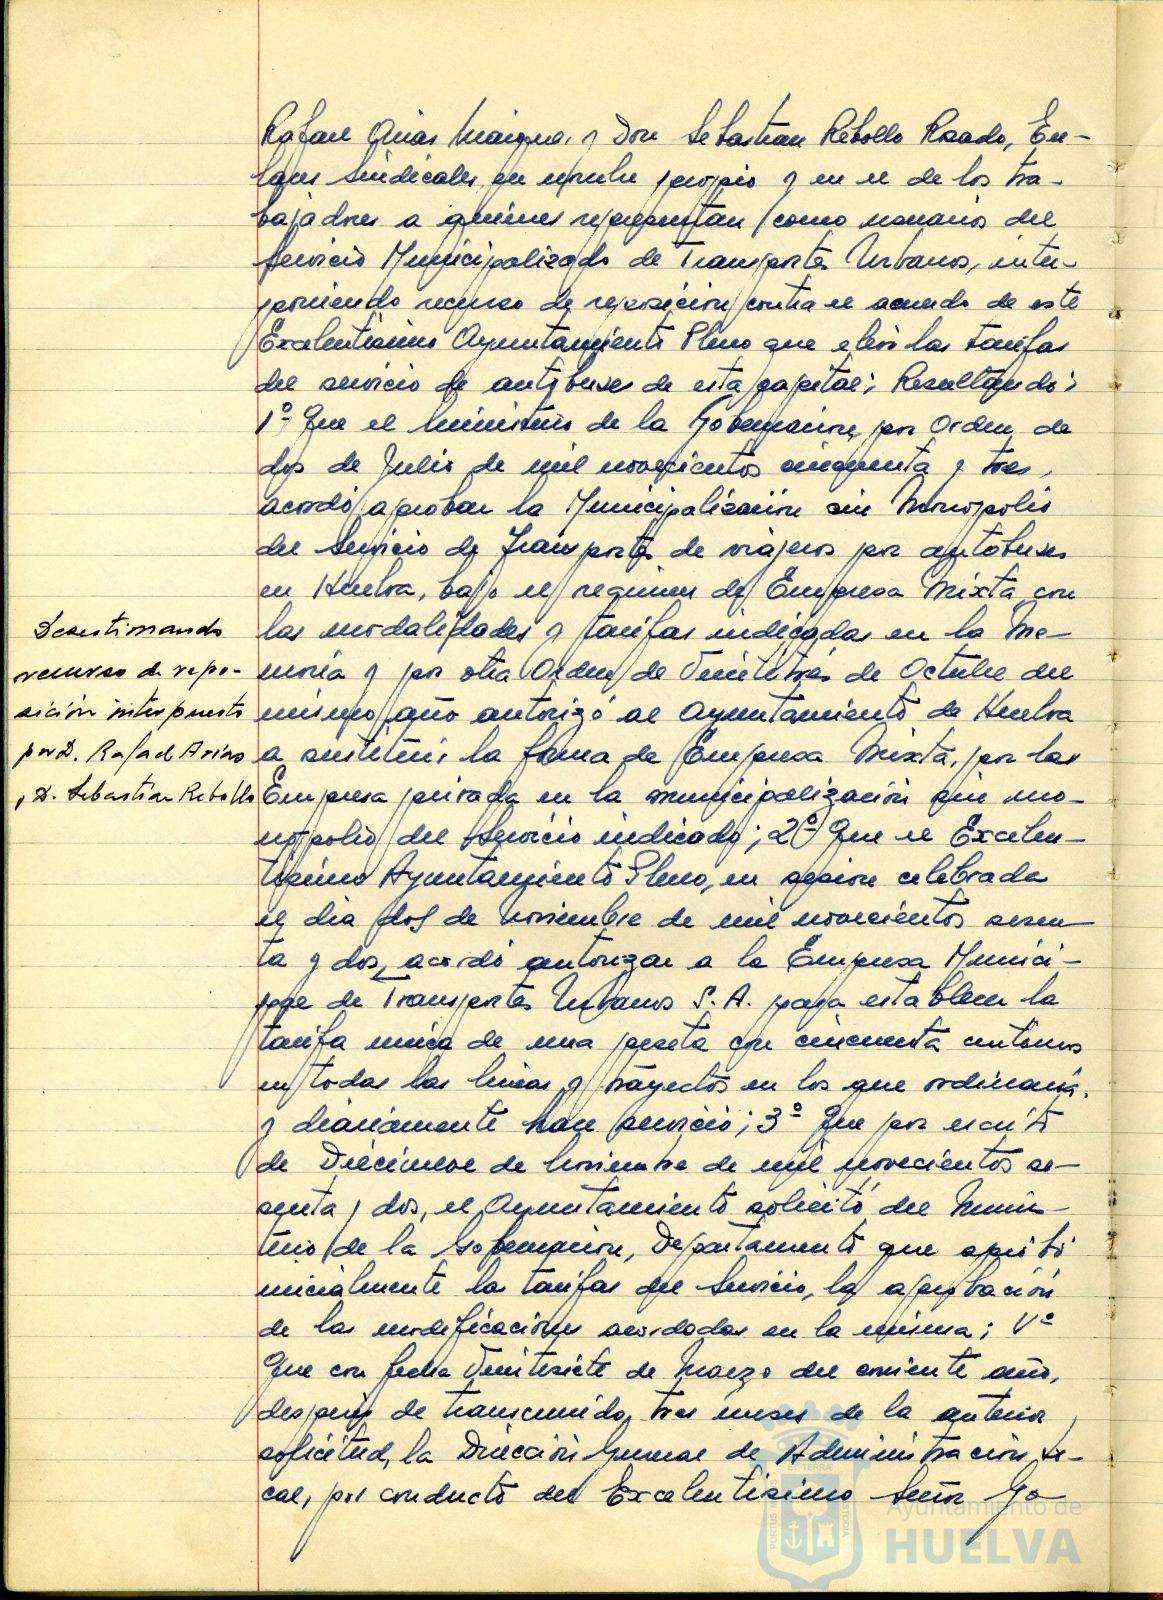 Rafael Arias y Don Sebastian Rebollo Rosado, En-
laces Sindicales, en nombre propio y en el de los tra-
bajadores a quienes representan, como usuarios del
Servicio Municipalizado de Transportes Urbanos, inter-
poniendo recurso de reposicion contra el acuerdo de este
Excelentisimo Ayuntamiento Pleno que elevó las tarifas
del servicio de autobuses de esta capital; Resultando:
1º Que el Ministerio de la Gobernacion, por Orden de
dos de Julio de mil novecientos cincuenta y tres,
acordó aprobar la Municipalización sin Monopolio
del Servicio de Transportes de viajeros por autobuses
en Huelva, bajo el regimen de Empresa Mixta, con
las modalidades y tarifas indicadas en la Me-
moria y por otra Orden de Veintitrés de Octubre del
mismo año autorizó al Ayuntamiento de Huelva
a sustituir la forma de Empresa Mixta, por las
Empresa privada en la municipalización sin mo-
nopolio del Servicio indicado; 2º Que el Excelen-
tisimo Ayuntamiento Pleno, en sesion celebrada
el dia dos de noviembre de mil novecientos sesen-
ta y dos, acordó autorizar a la Empresa Munici-
pal de Transportes Urbanos S. A. para establecer la
tarifa unica de una peseta con cincuenta centimos
en todas las lineas y trayectos en los que ordinaria
y diariamente han servicio; 3º Que por escrito
de Diecinueve de Noviembre de mil novecientos se-
senta y dos, el Ayuntamiento solicitó del Minis-
terio de la Gobernacion, Departamento que aprobó
inicialmente la tarifas del Servicio, la aprobación
de las modificaciones acordadas en la misma; Vº
Que con fecha Veintisiete de Marzo del corriente año,
despues de transcurrido tres meses de la anterior
solicitud, la Dirección General de Administracion Lo-
cal, por conducto del Excelentisimo Señor Go
Desestimando
recurso de repo-
sición interpuesto
por D. Rafael Arias
y D. Sebastian Rebollo
LA TERRA
PORTUS
CUSTODIA
Ayuntamiento de
HUELVA